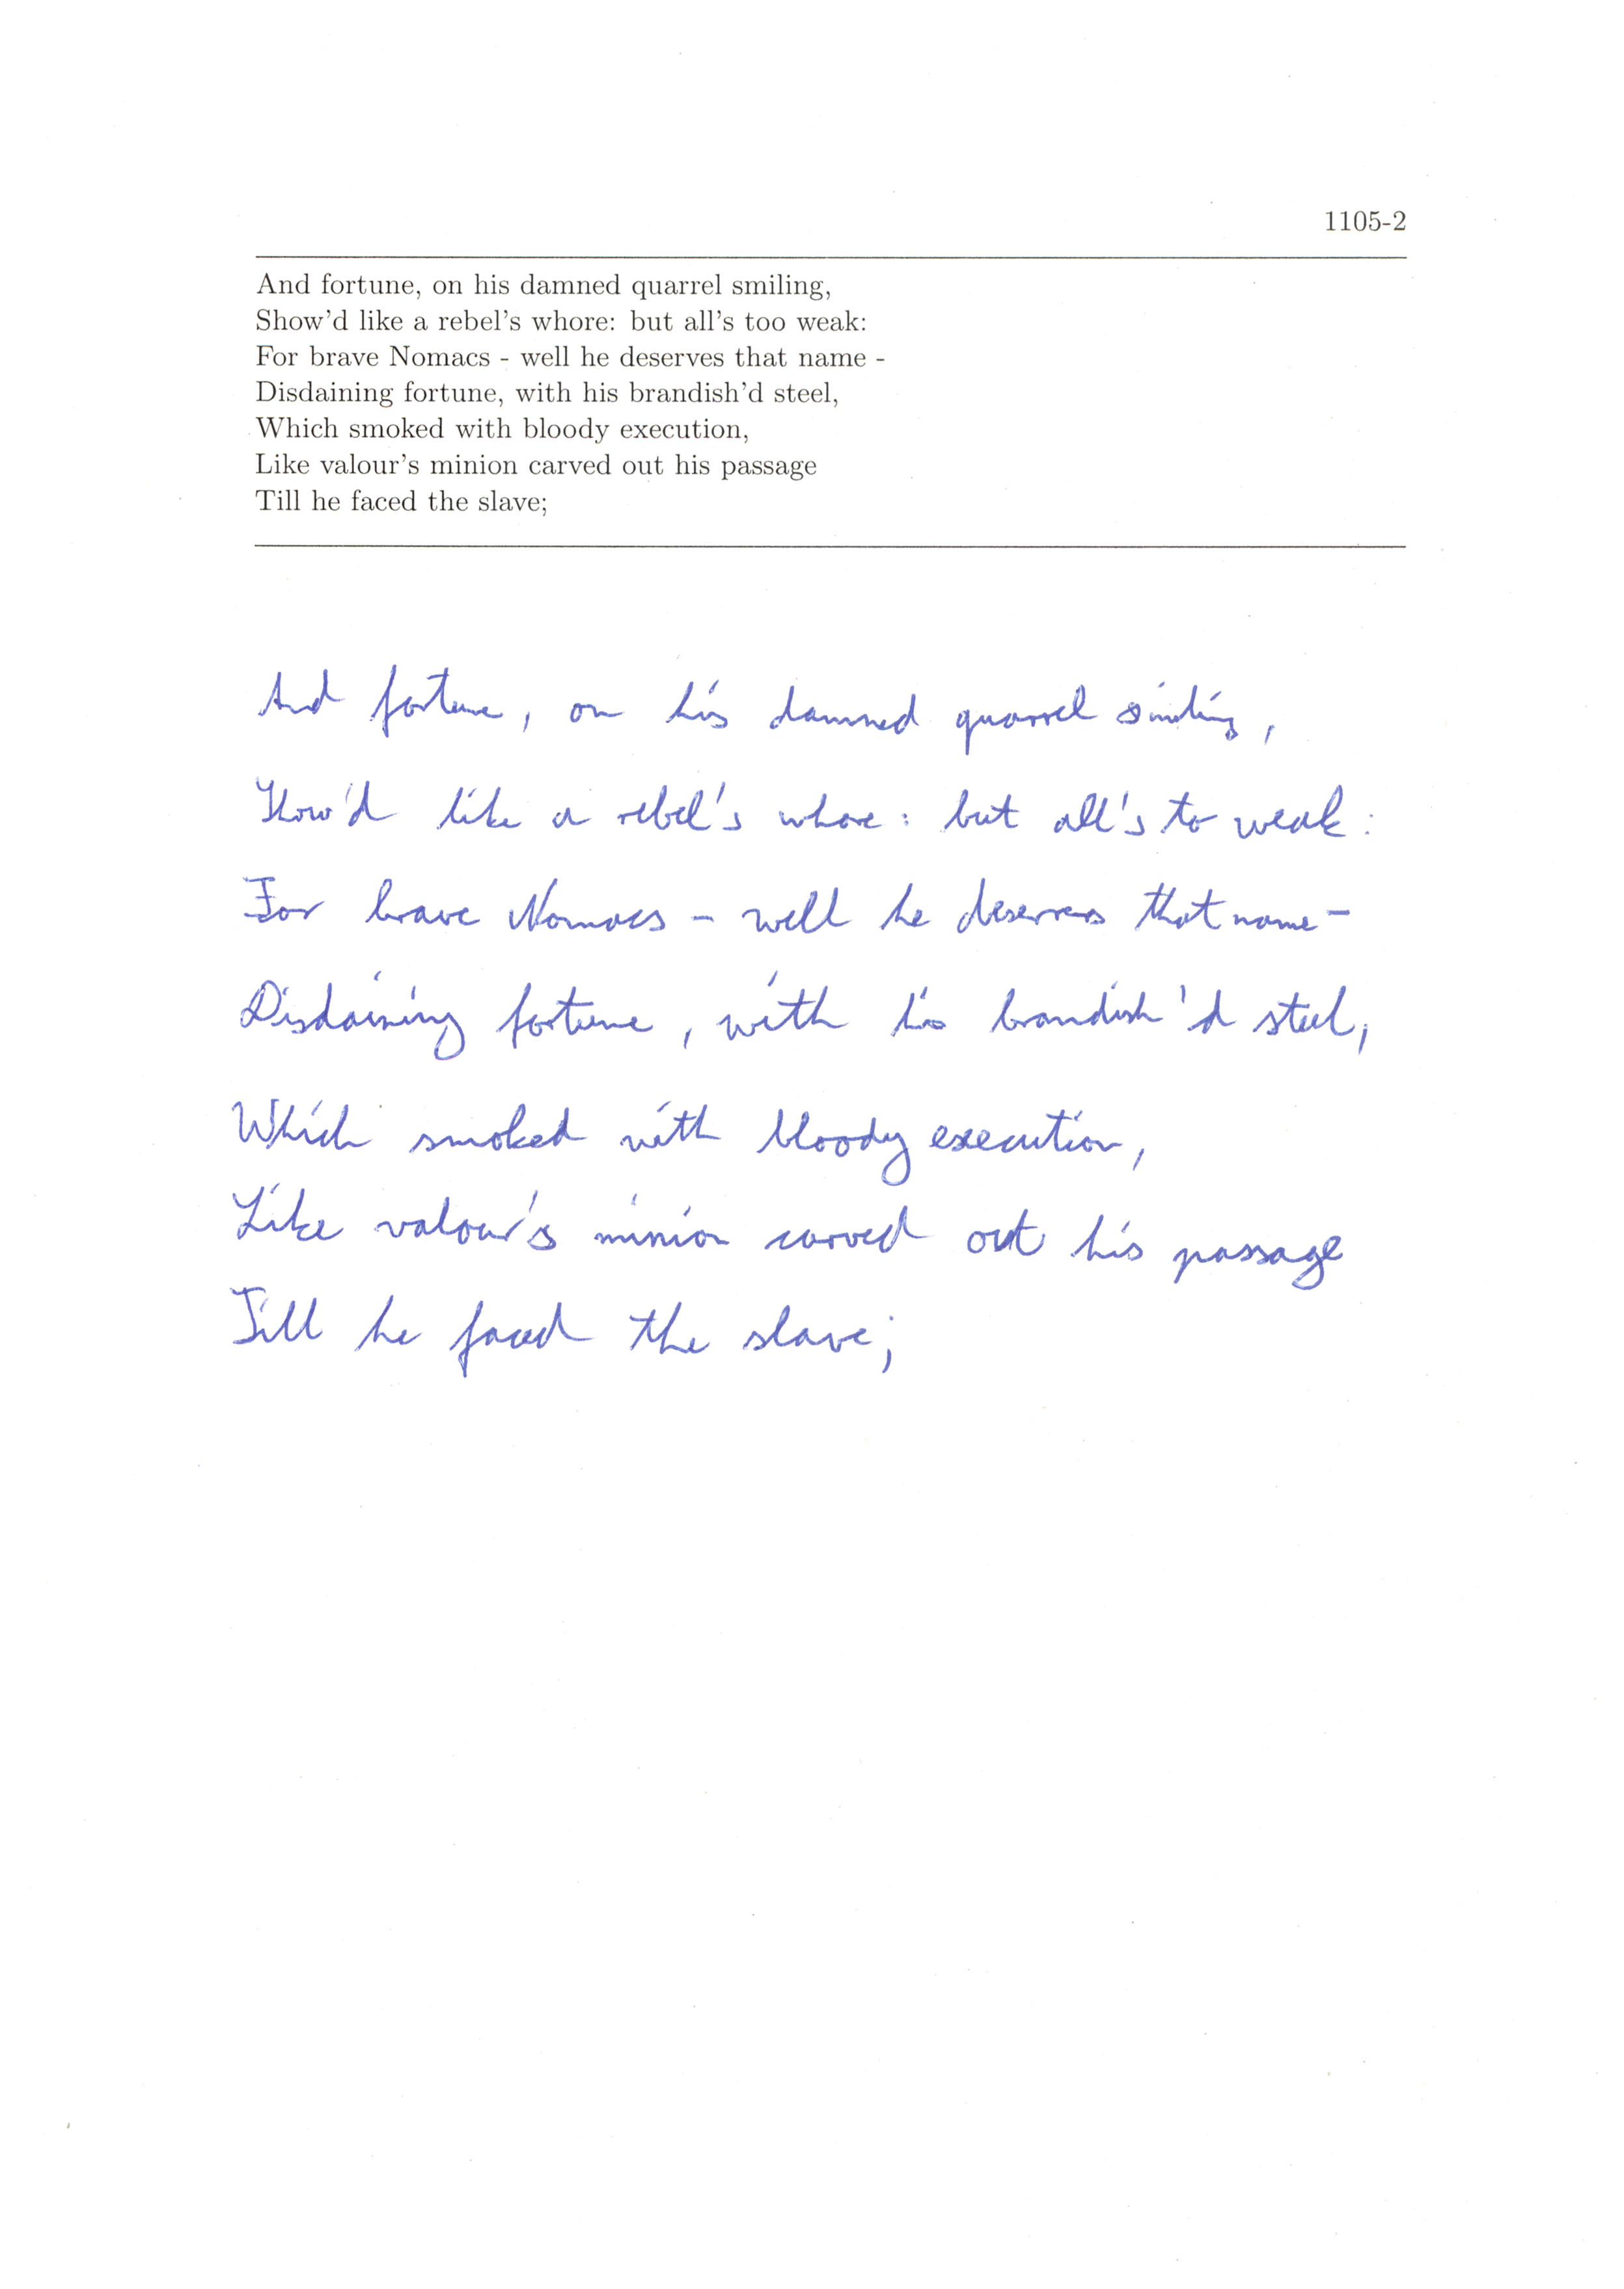 1105-2
And fortune, on his damned quarrel smiling,
Show'd like a rebel's whore: but all's too weak:
For brave Nomacs - well he deserves that name -
Disdaining fortune, with his brandish'd steel,
Which smoked with bloody execution,
Like valour's minion carved out his passage
Till he faced the slave;
And fortune, on his damned quarrel smiling,
Show'd like a rebel's whore: but all's to weak:
For brave Nomacs - well he deserves that name -
Disdaining fortune, with his brandish'd steel,
Which smoked with bloody execution,
Like valour's minion carved out his passage
Till he faced the slave;